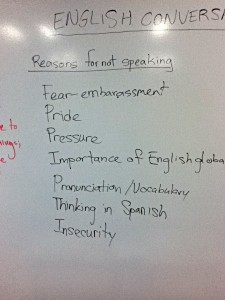 ENGLISH CONVERSA
Reasons for not speaking
Fear-embarassment
Pride
Pressure
Importance of English globa
Pronunciation/Vocabulary
Thinking in Spanish
Insecurity
e to